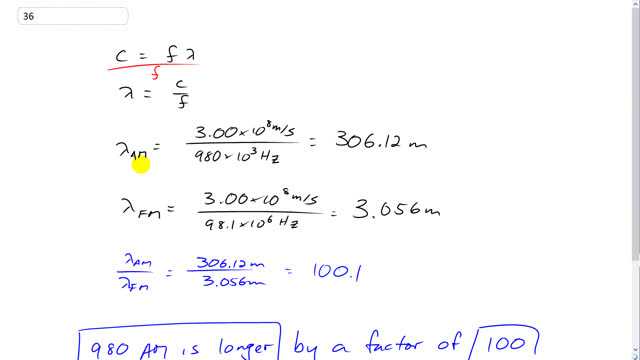 36
c = f λ
f
λ = c/f
λAM = 3.00×10⁸m/s / 980×10³Hz = 306.12 m
λFM = 3.00×10⁸m/s / 98.1×10⁶ Hz = 3.056m
λAM/λFM = 306.12m / 3.056m = 100.1
980 AM is longer by a factor of 100